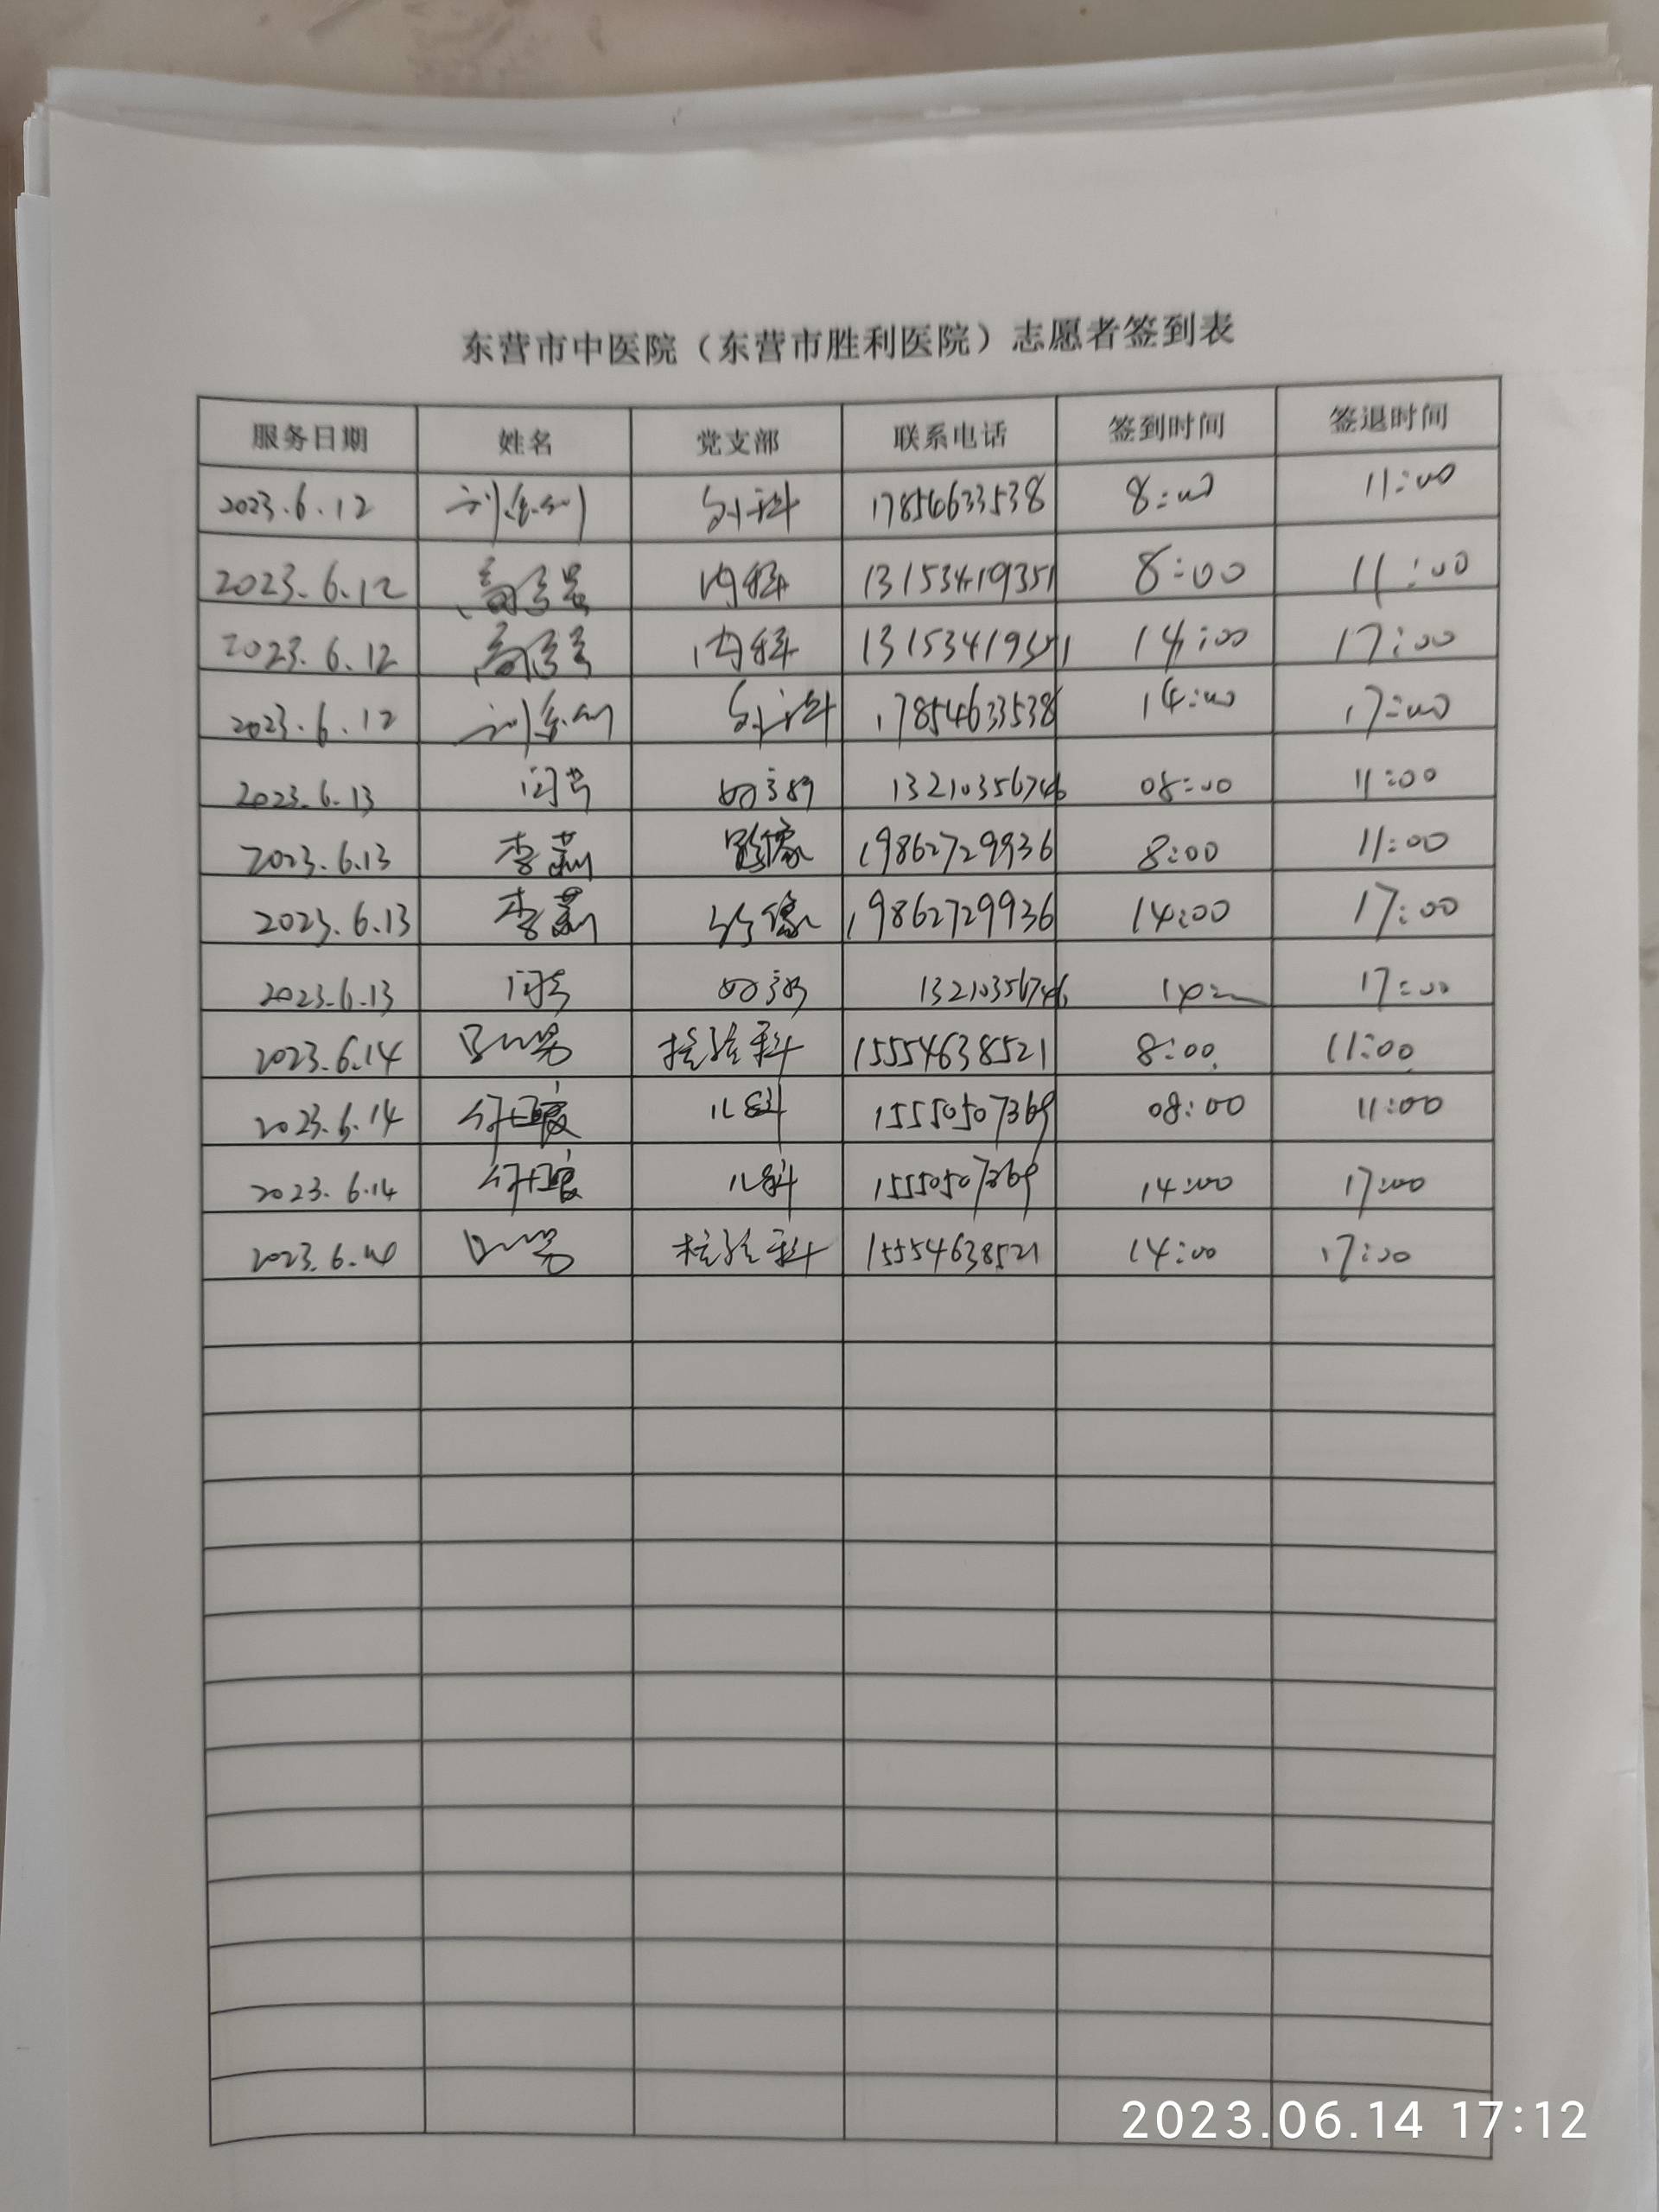 东营市中医院（东营市胜利医院）志愿者签到表
服务日期 姓名 党支部 联系电话 签到时间 签退时间
2023.6.12 外科 17854633538 8:00 11:00
2023.6.12 内科 13153419351 8:00 11:00
2023.6.12 内科 13153419351 14:00 17:00
2023.6.12 外科 17854633538 14:00 17:00
2023.6.13 13210356746 08:00 11:00
2023.6.13 李莉 影像 19862729936 8:00 11:00
2023.6.13 李莉 影像 19862729936 14:00 17:00
2023.6.13 13210356746 17:00
2023.6.14 检验科 15554638521 8:00 11:00
2023.6.14 儿科 15550507369 08:00 11:00
2023.6.14 儿科 15550507369 14:00 17:00
2023.6.14 检验科 15554638521 14:00 17:00
2023.06.14 17:12